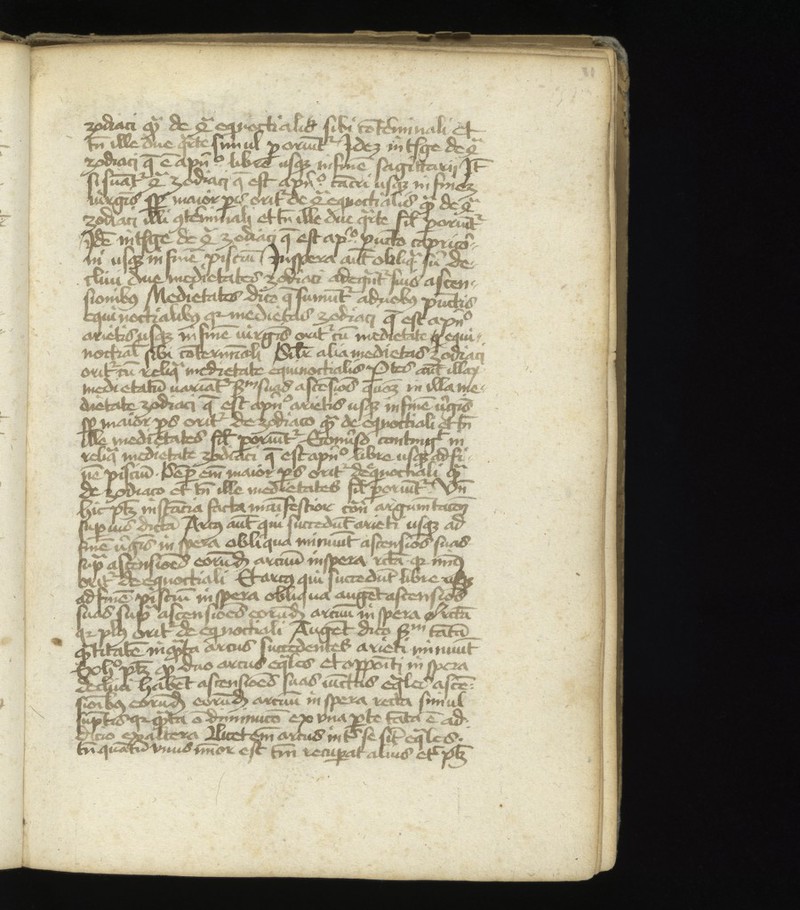 zodiaci q̄ de q̄ͣ equoctialis sibi cōterminali et
tn̄ ille due q̄rte simul ꝑoriūtᷣ Idez int̄lige de q̄ͣ
zodiaci q̄ ē a pn̄º libre usqꝫ in finē sagittarij It̄
si sumat̄ᷣ q̄ͣ zodiaci q̄ est a pn̄º cācri usqꝫ in finez
uirgīs sꝑ maior ꝑs oritᷣ de q̄ͣ equoctialis q̄ de q̄ͣ
zodiaci illi cōterminali et tn̄ ille due q̄rte sil̄ ꝑoriūtᷣ
Idē int̄lige de q̄ͣ zodiaci q̄ est a pº puncto capricor-
ni usqꝫ in finē pisciū In spera aūt obliqͣ siū de-
cliui due medietates zodiaci adequātᷣ suis ascen-
sionibus Medietates dico q̄ sumūtᷣ a duobus pūctis
equinoctialibus qr medietas zodiaci q̄ est a pn̄º
arietis usqꝫ in finē uirgīs oritᷣ cū medietate equi-
noctial̄ sibi coterminali Sil̄r alia medietas zodiaci
oritᷣ cū reliqͣ medietate equinoctialis Ptes aūt illaꝝ
medietatū uariātᷣ sm̄ suas ascēsiōs quoīꝫ in illa me-
dietate zodiaci q̄ est a pn̄º arietis usqꝫ in finē uirgīs
sꝑ maior ꝑs oritᷣ de zodiaco q̄ de equoctiali et tn̄
ille medietates sil̄ ꝑoriūtᷣ Econuīso contingit in
reliqͣ medietate zodiaci q̄ est a pn̄º libre usqꝫ ad fi-
nē pisciū Semꝑ em̄ maior ꝑs oritᷣ de equoctiali q̄
de zodiaco et tn̄ ille medietates sil̄ ꝑoriūtᷣ Vn̄
hic ptꝫ instātia facta manifestior cōn̄ argumentatōꝫ
suꝑius dictā Arcus aūt qui succedunt arieti usqꝫ ad
finē uirgīs in spera obliqua minuūt ascensiōs suas
supᷓ ascensiōes eorūdꝫ arcuū in spera rectā qr minꝰ
oritᷣ de equoctiali Et arcus qui succedūt libre usqꝫ
ad finē pisciū in spera obliqua augēt ascensiōs
suas supᷓ ascensiōes eorūdꝫ arcuū in spera rectā
qr plus oritᷣ de eqnoctiali Augēt dico sm̄ tātā
q̄titatē in q̄ta arcus succedentes arieti minuūt
Ex hº ptꝫ ꝙ duo arcus eq̄les et oppositi in spera
decliui habēt ascensiōes suas iūctas eq̄les ascē-
sioibus eorūdꝫ eorūdꝫ arcuū in spera recta simul
sūptis qr q̄ta ē diminutō ex vna ꝑte tāta ē ad-
ditio ex altera Licet em̄ arcus int̄ se sīt eq̄les
tn̄ quātū vnus mīor est tm̄ recuꝑat alius et ptꝫ